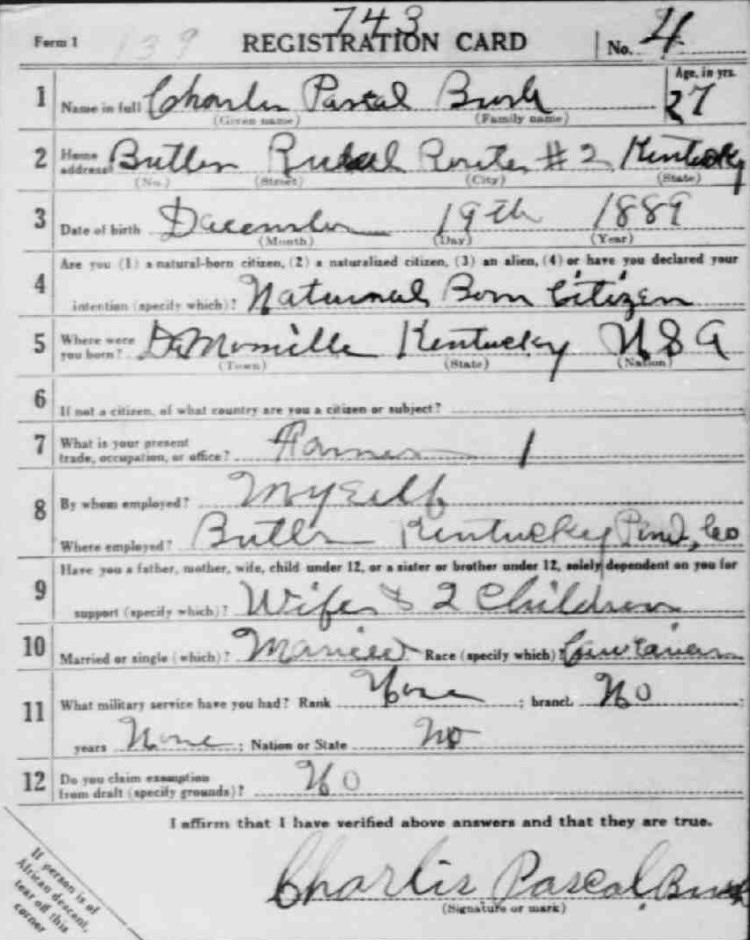 743
Form 1 139 REGISTRATION CARD No. 4
1 Name in full Charles Pascal Bush Age, in yrs. 27
(Given name) (Family name)
2 Home address Butler Rural Route #2 Kentucky
(No.) (Street) (City) (State)
3 Date of birth December 19th 1889
(Month) (Day) (Year)
4 Are you (1) a natural-born citizen, (2) a naturalized citizen, (3) an alien, (4) or have you declared your
intention (specify which)? Natural Born Citizen
5 Where were you born? DeMossville Kentucky USA
(Town) (State) (Nation)
6 If not a citizen, of what country are you a citizen or subject?
7 What is your present trade, occupation, or office? Farmer 1
8 By whom employed? Myself
Where employed? Butler Kentucky Pend, Co
9 Have you a father, mother, wife, child under 12, or a sister or brother under 12, solely dependent on you for
support (specify which)? Wife & 2 Children
10 Married or single (which)? Married Race (specify which)? Caucasian
11 What military service have you had? Rank None ; branch No ;
years None ; Nation or State No
12 Do you claim exemption from draft (specify grounds)? No
I affirm that I have verified above answers and that they are true.
Charlis Pascal Bush
(Signature or mark)
If person is of
African descent,
tear off this
corner